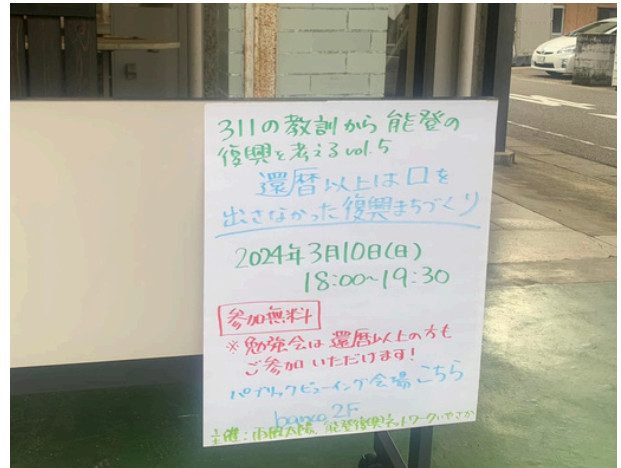 311の教訓から能登の
復興を考えるvol.5
還暦以上は口を
出さなかった復興まちづくり
2024年3月10日(日)
18:00~19:30
参加無料
※勉強会は還暦以上の方も
ご参加いただけます!
パブリックビューイング会場こちら
banco 2F
主催:雨風太陽、能登復興ネットワークいやさか